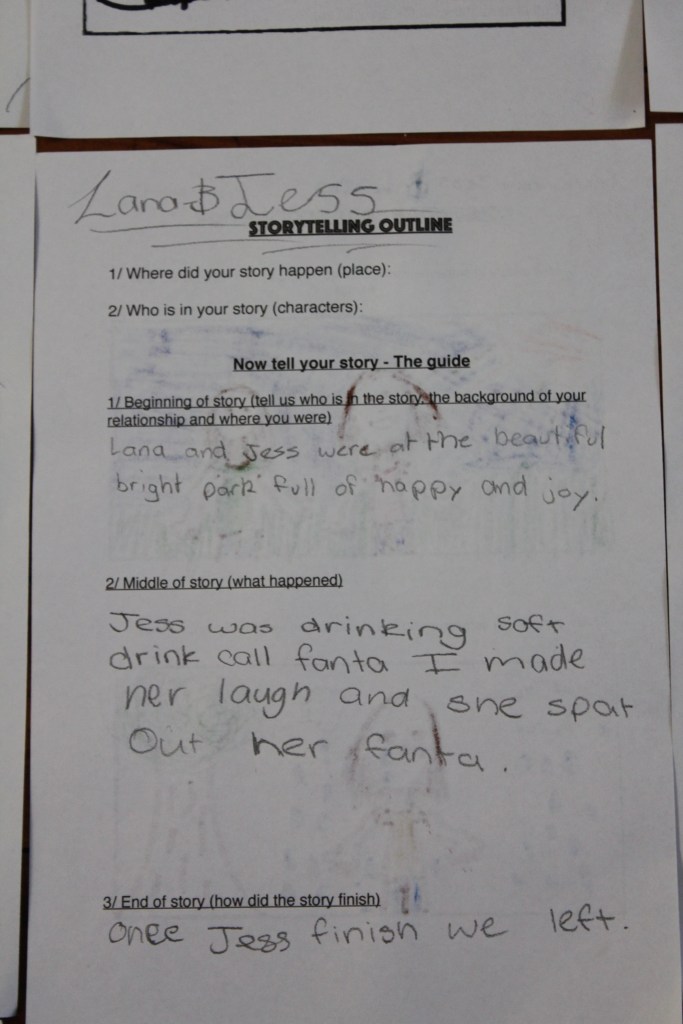 Lana & Jess
STORYTELLING OUTLINE
1/ Where did your story happen (place):
2/ Who is in your story (characters):
Now tell your story - The guide
1/ Beginning of story (tell us who is in the story, the background of your
relationship and where you were)
Lana and Jess were at the beautiful
bright park full of happy and joy.
2/ Middle of story (what happened)
Jess was drinking soft
drink call fanta I made
her laugh and she spat
Out her fanta.
3/ End of story (how did the story finish)
Once Jess finish we left.